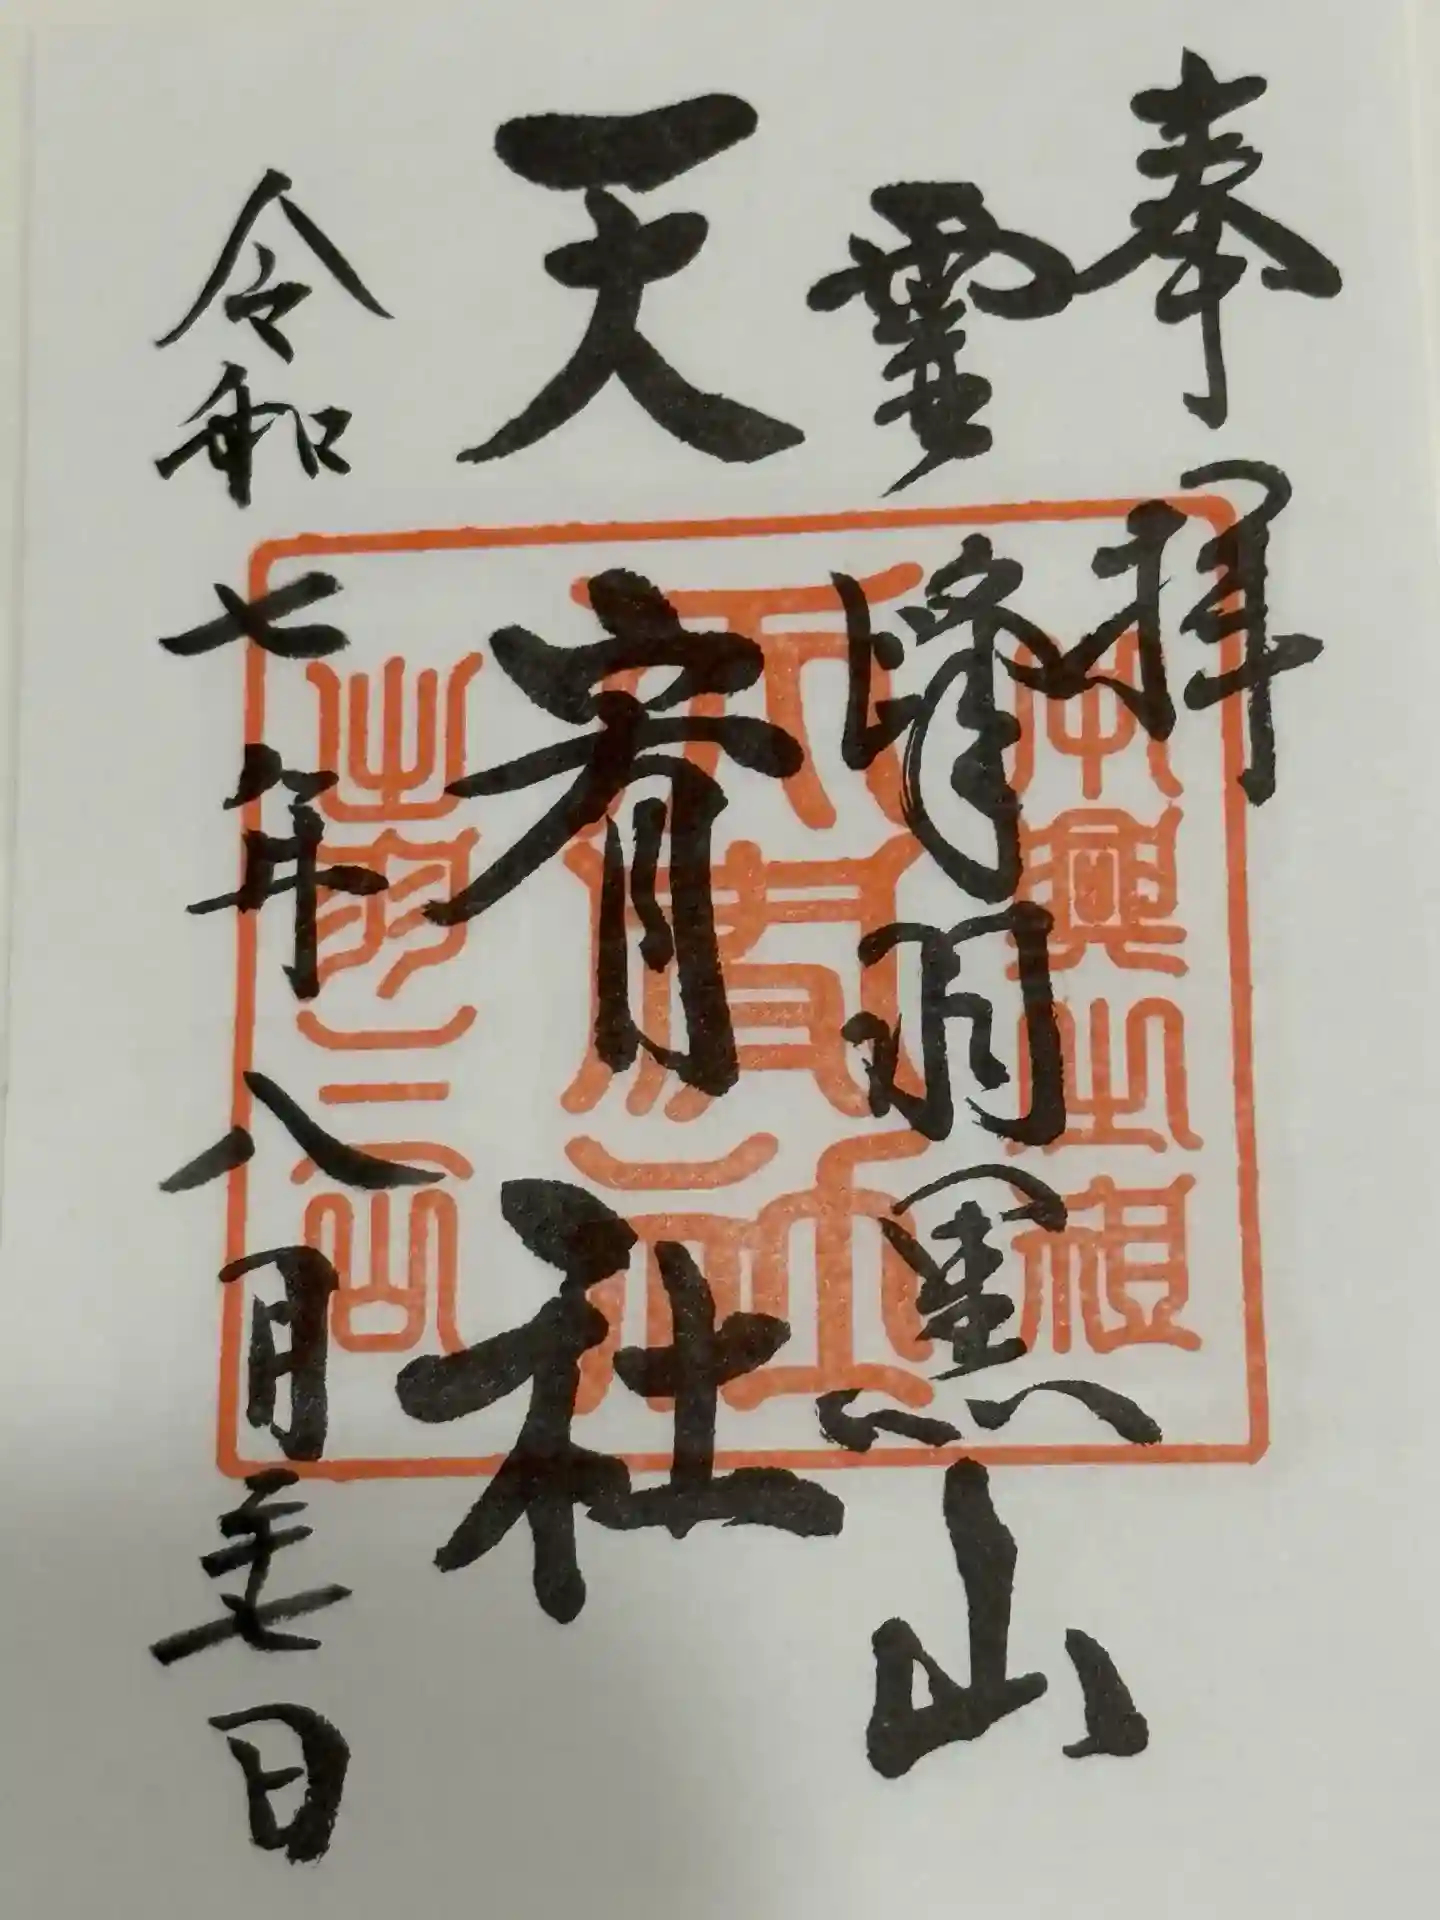 奉拝
霊峰羽黒山
天宥社
令和七年八月二十七日
中興之祖
天宥社
出羽三山